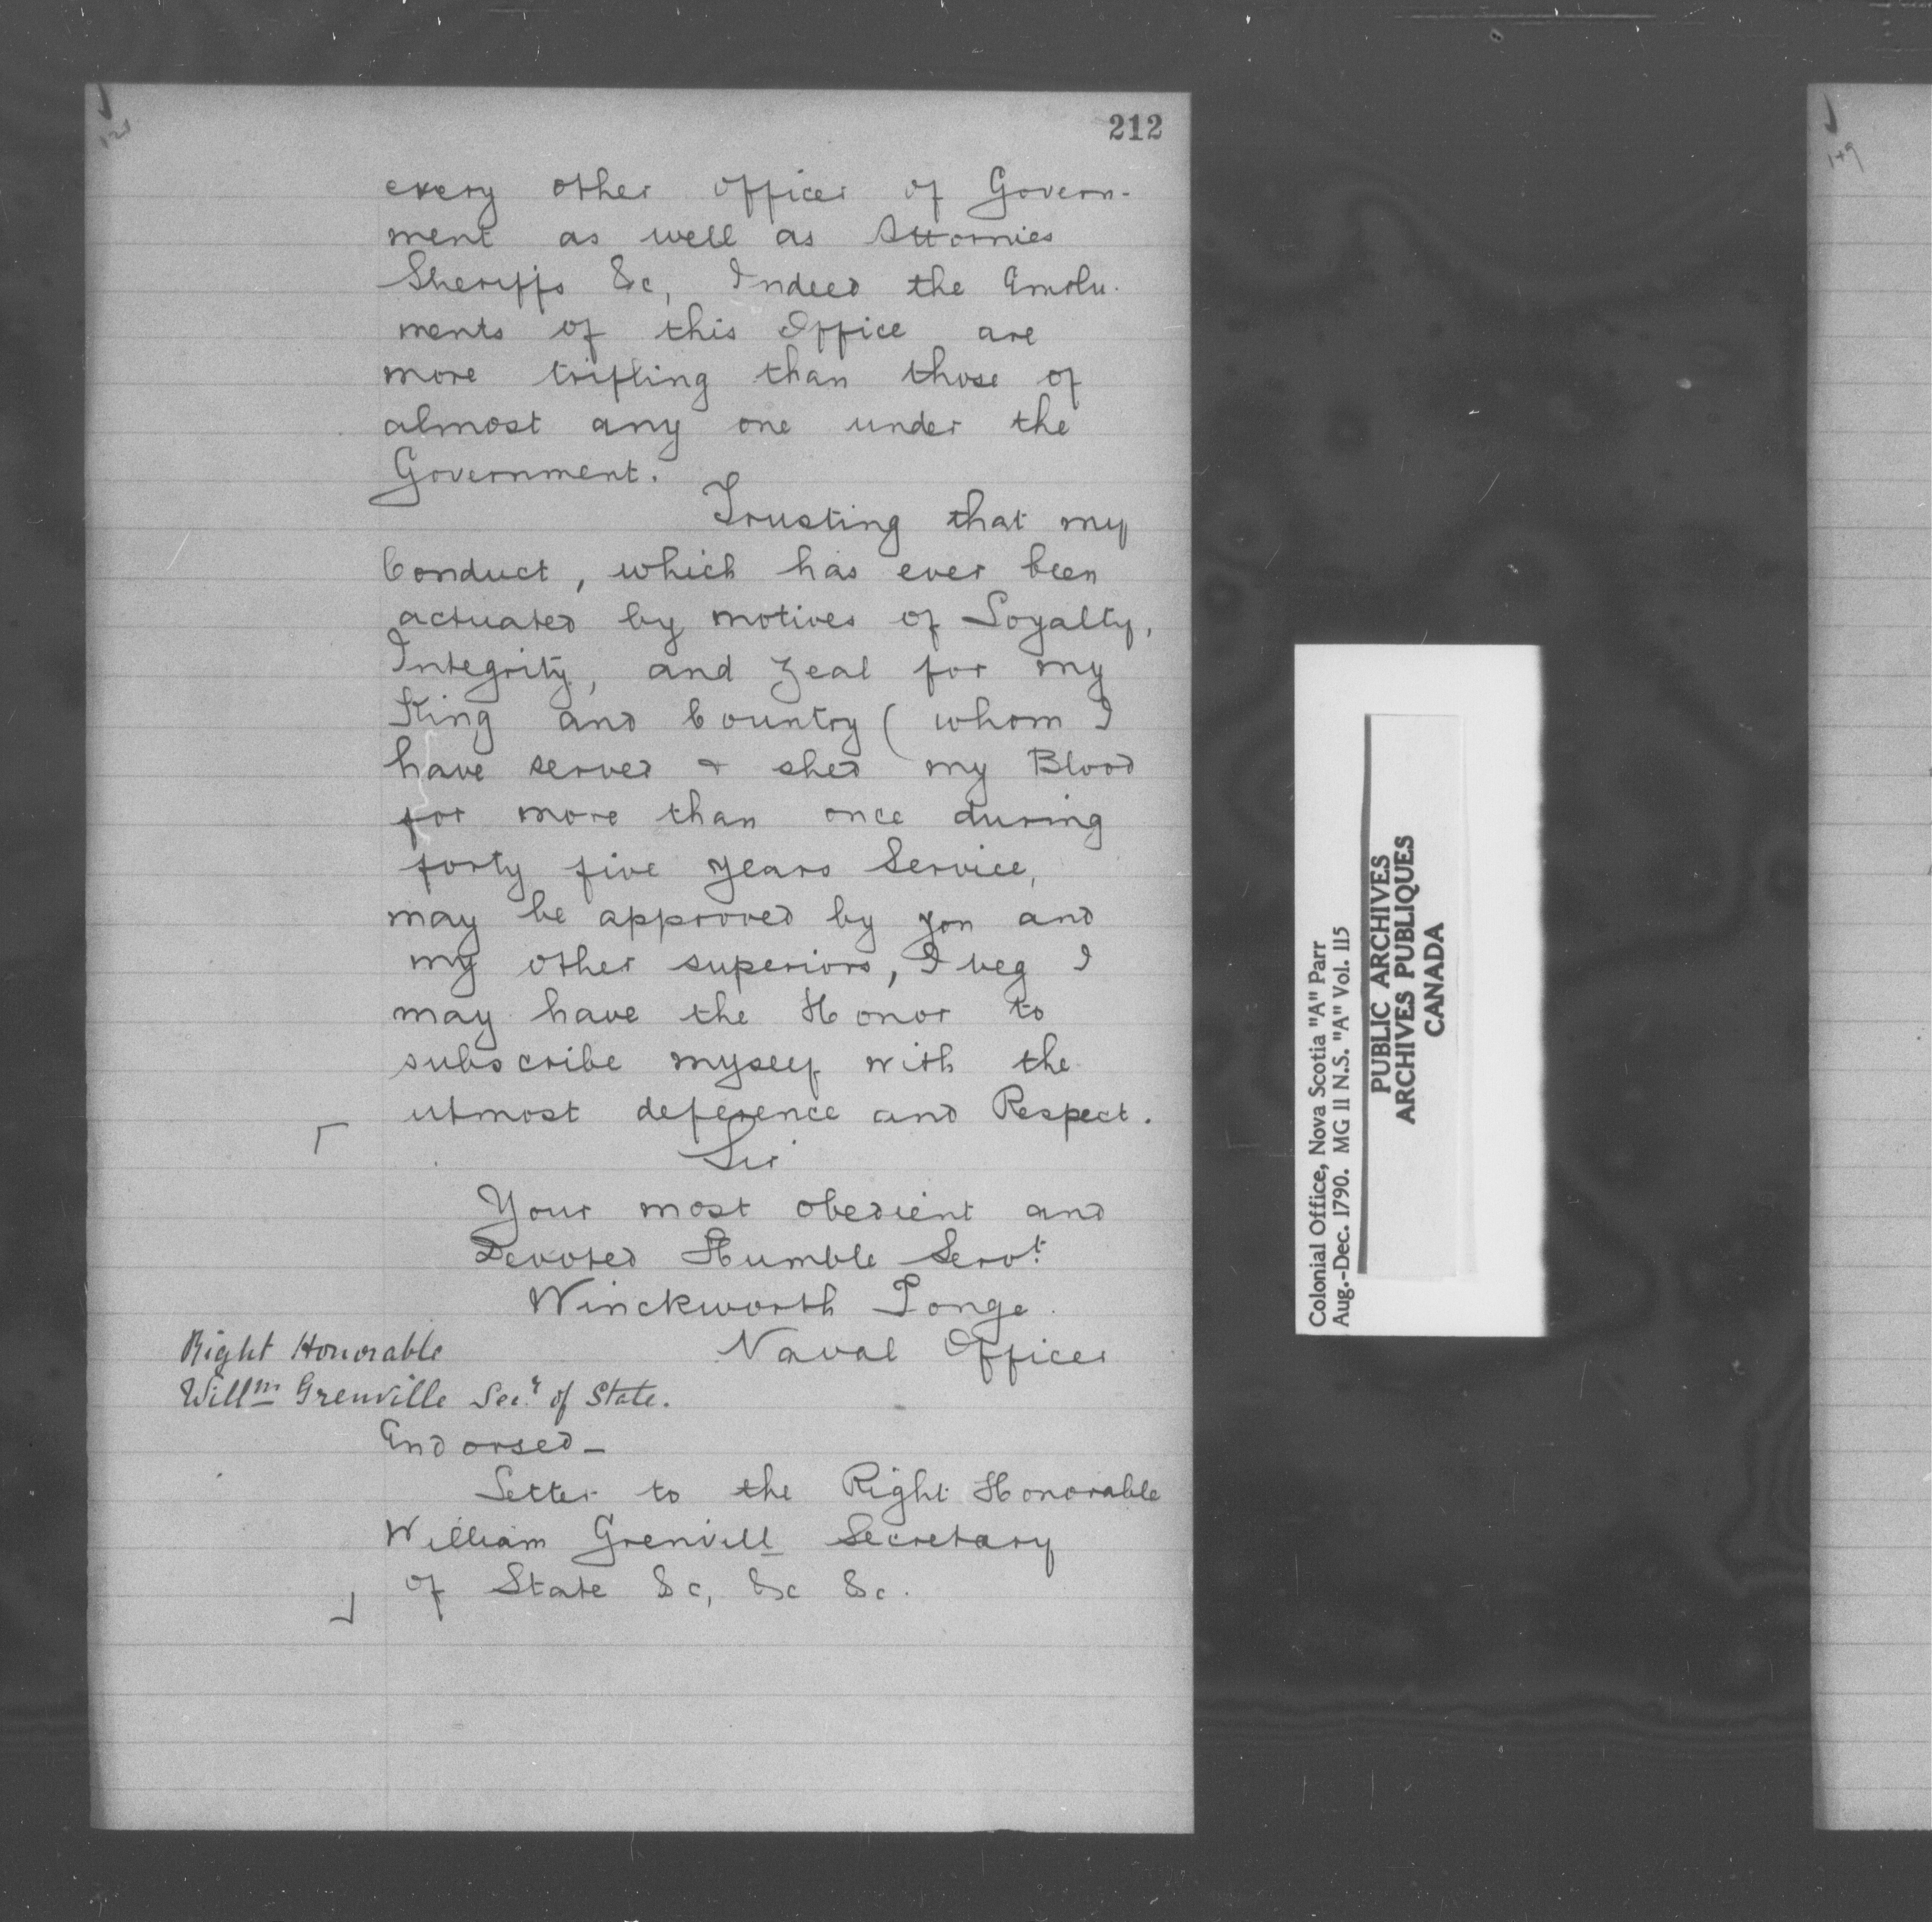 212
every other officer of Govern-
ment as well as Attornies
Sheriffs &c, Indeed the Emolu-
ments of this Office are
more trifling than those of
almost any one under the
Government.
Trusting that my
Conduct, which has ever been
actuated by motives of Loyalty,
Integrity, and Zeal for my
King and Country ( whom I
have served & shed my Blood
for more than once during
forty five years Service,
may be approved by you and
my other superiors, I beg I
may have the Honor to
subscribe myself with the
utmost deference and Respect.
Sir
Your most obedient and
Devoted Humble Servt.
Winckworth Tonge.
Naval Officer
Right Honorable
Willm Grenville Secy. of State.
Endorsed—
Letter to the Right Honorable
William Grenvill Secretary
of State &c, &c &c.
Colonial Office, Nova Scotia "A" Parr
Aug.-Dec. 1790. MG 11 N.S. "A" Vol. 115
PUBLIC ARCHIVES
ARCHIVES PUBLIQUES
CANADA
149